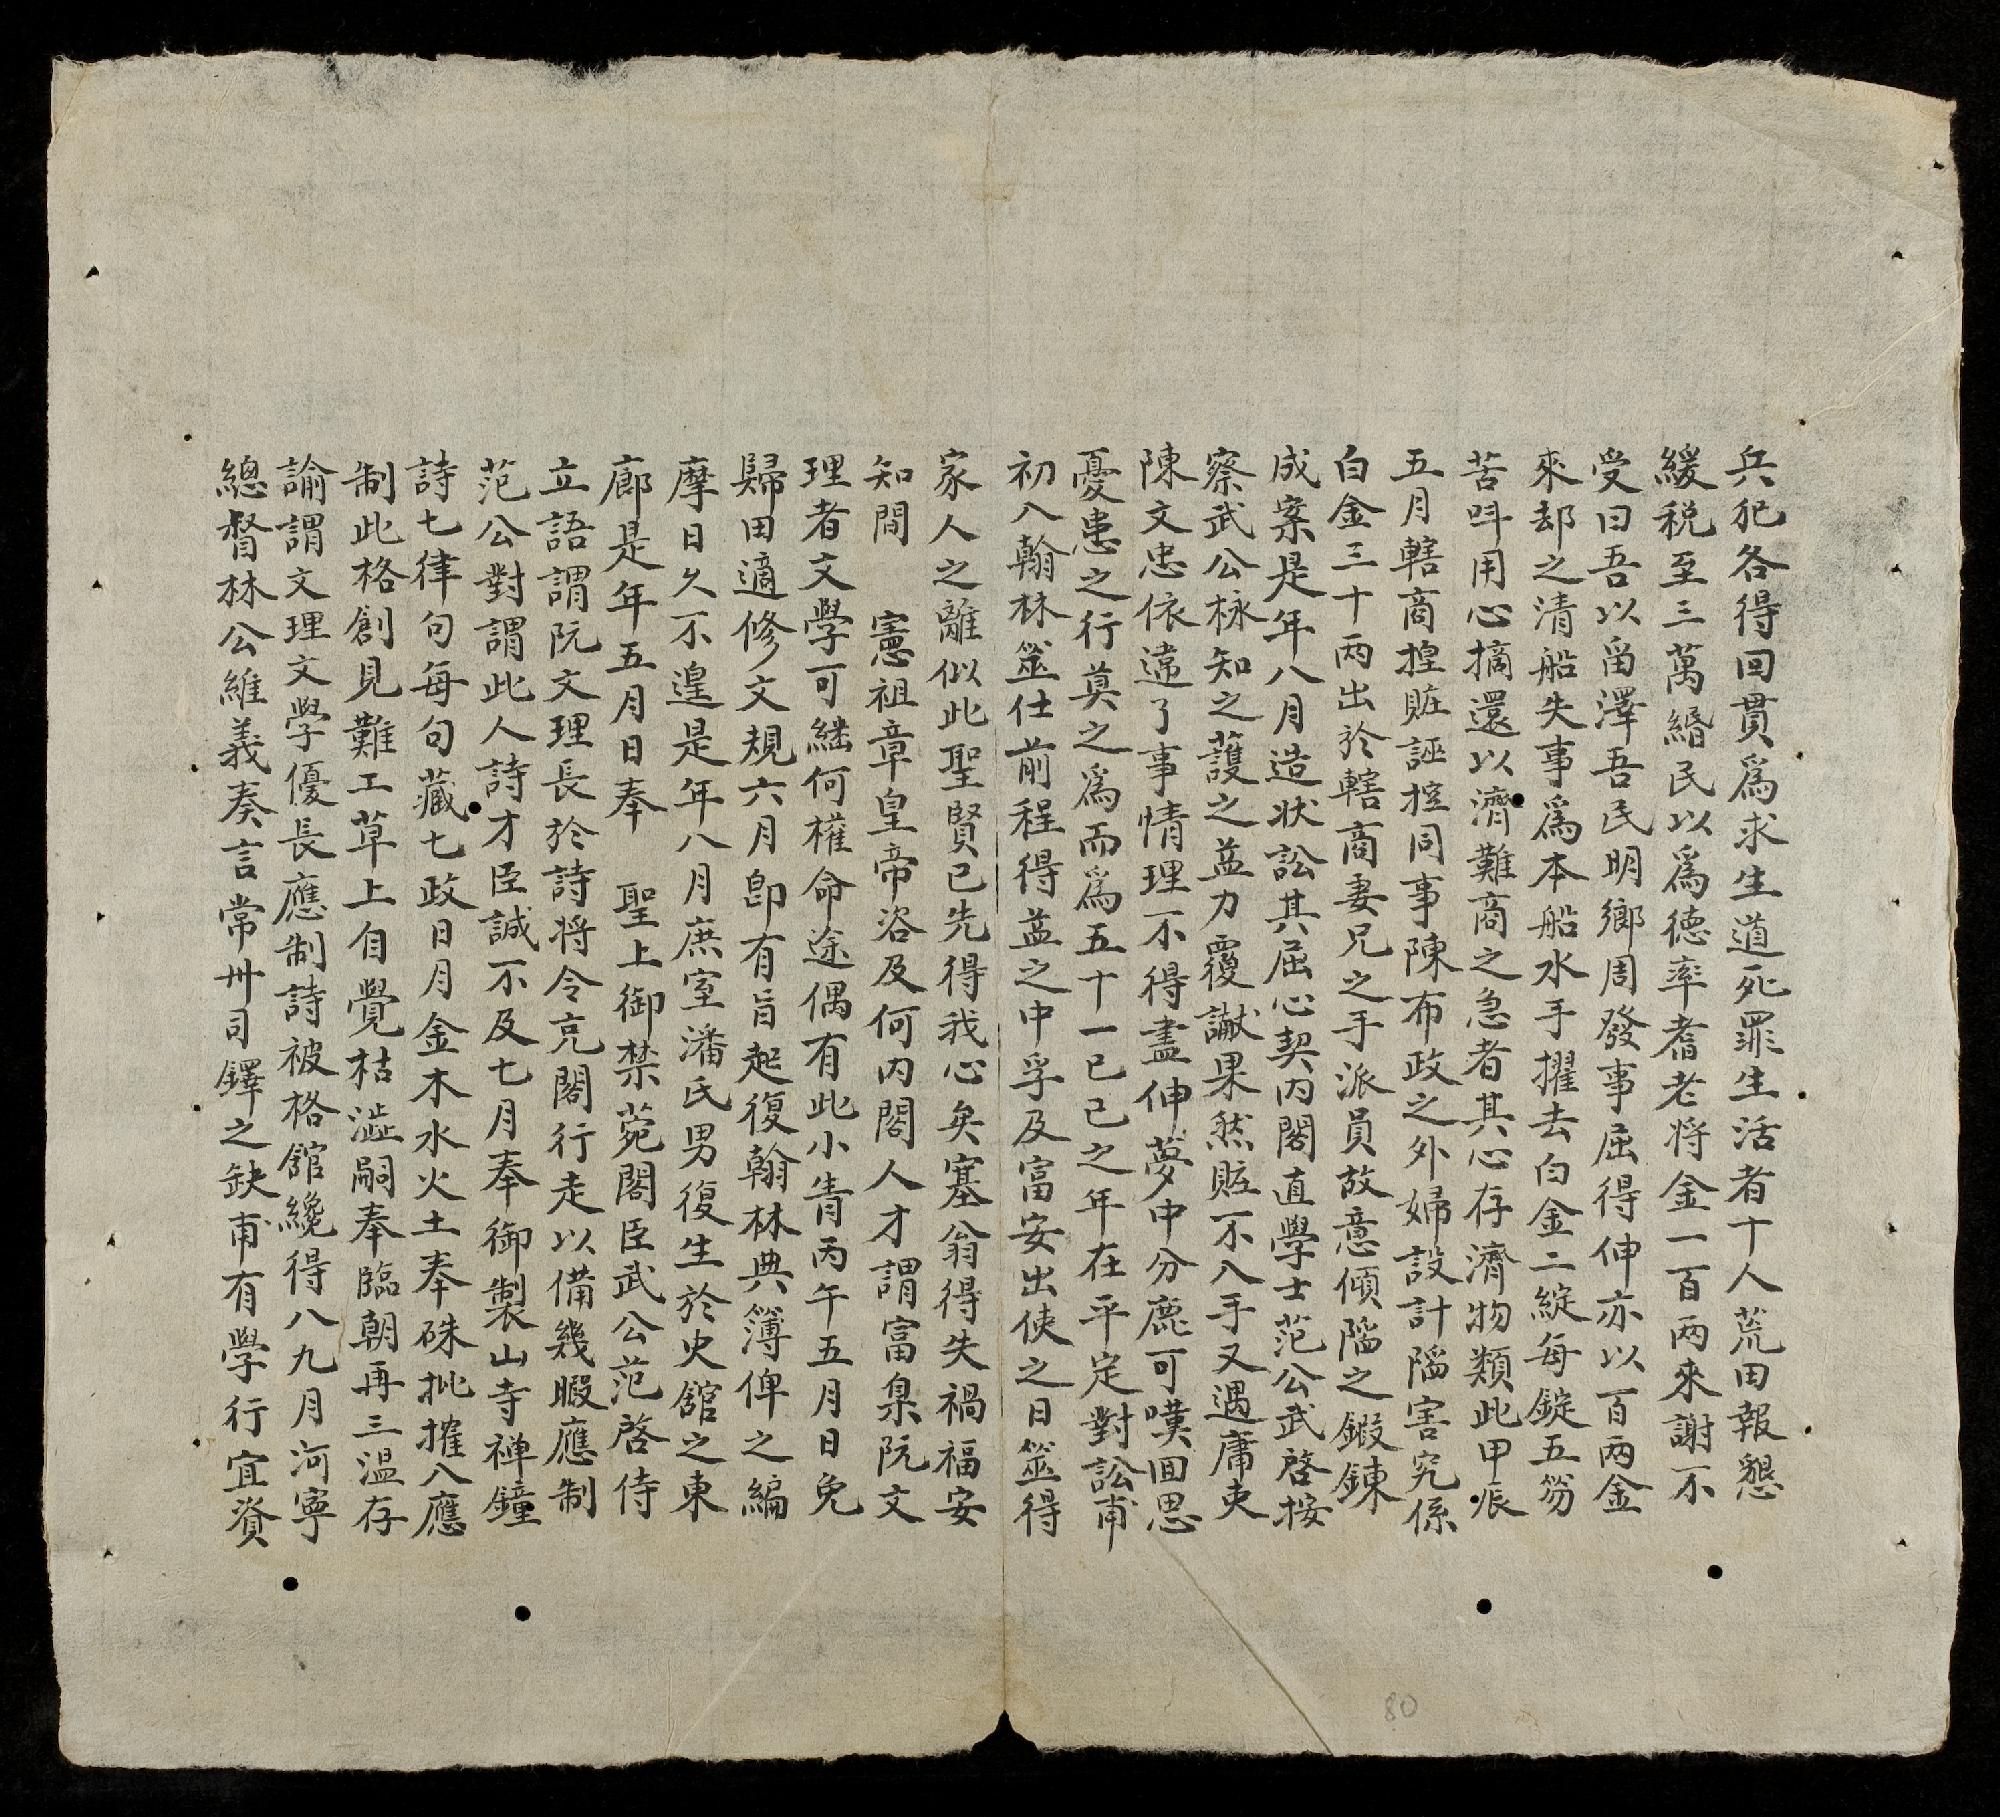 兵犯各得回貫爲求生道死罪生活者十人荒田報懇
緩税至三萬緡民以爲德率耆老将金一百兩來謝不
受曰吾以畱澤吾民明鄉周發事屈得伸亦以百兩金
來却之清船失事爲本船水手擢去白金二綻每錠五笏
苦呌用心摘還以濟難商之急者其心存濟物類此甲辰
五月轄商揘賍誣控同事陳布政之外婦設計陷害究係
白金三十兩出於轄商妻兄之手派員故意傾陷之鍛鍊
成案是年八月造状訟其屈心契内閣直學士范公武啓按
察武公栐知之護之益力覆讞果然賍不入手又遇庸吏
陳文忠依違了事情理不得盡伸夢中分鹿可嘆回思
憂患之行莫之爲而爲五十一己巳之年在平定對訟甫
初入翰林筮仕前程得益之中孚及富安出使之日筮得
家人之離似此聖賢已先得我心矣塞翁得失禍福安
知間 憲祖章皇帝咨及何内閣人才謂富梟阮文
理者文學可繼何權命途偶有此小眚丙午五月日免
歸田適修文規六月卽有旨起復翰林典簿俾之編
摩日久不遑是年八月庶室潘氏男復生於史舘之東
廊是年五月日奉 聖上御禁菀閣臣武公范啓侍
立語謂阮文理長於詩将令充閣行走以備幾暇應制
范公對謂此人詩才臣誠不及七月奉御製山寺禅鐘
詩七律句每句藏七政日月金木水火土奉硃批擢入應
制此格創見難工草上自覺枯澁嗣奉臨朝再三温存
諭謂文理文學優長應制詩被格舘纔得八九月河寧
總督林公維義奏言常卅司鐸之缺甫有學行宜資
80